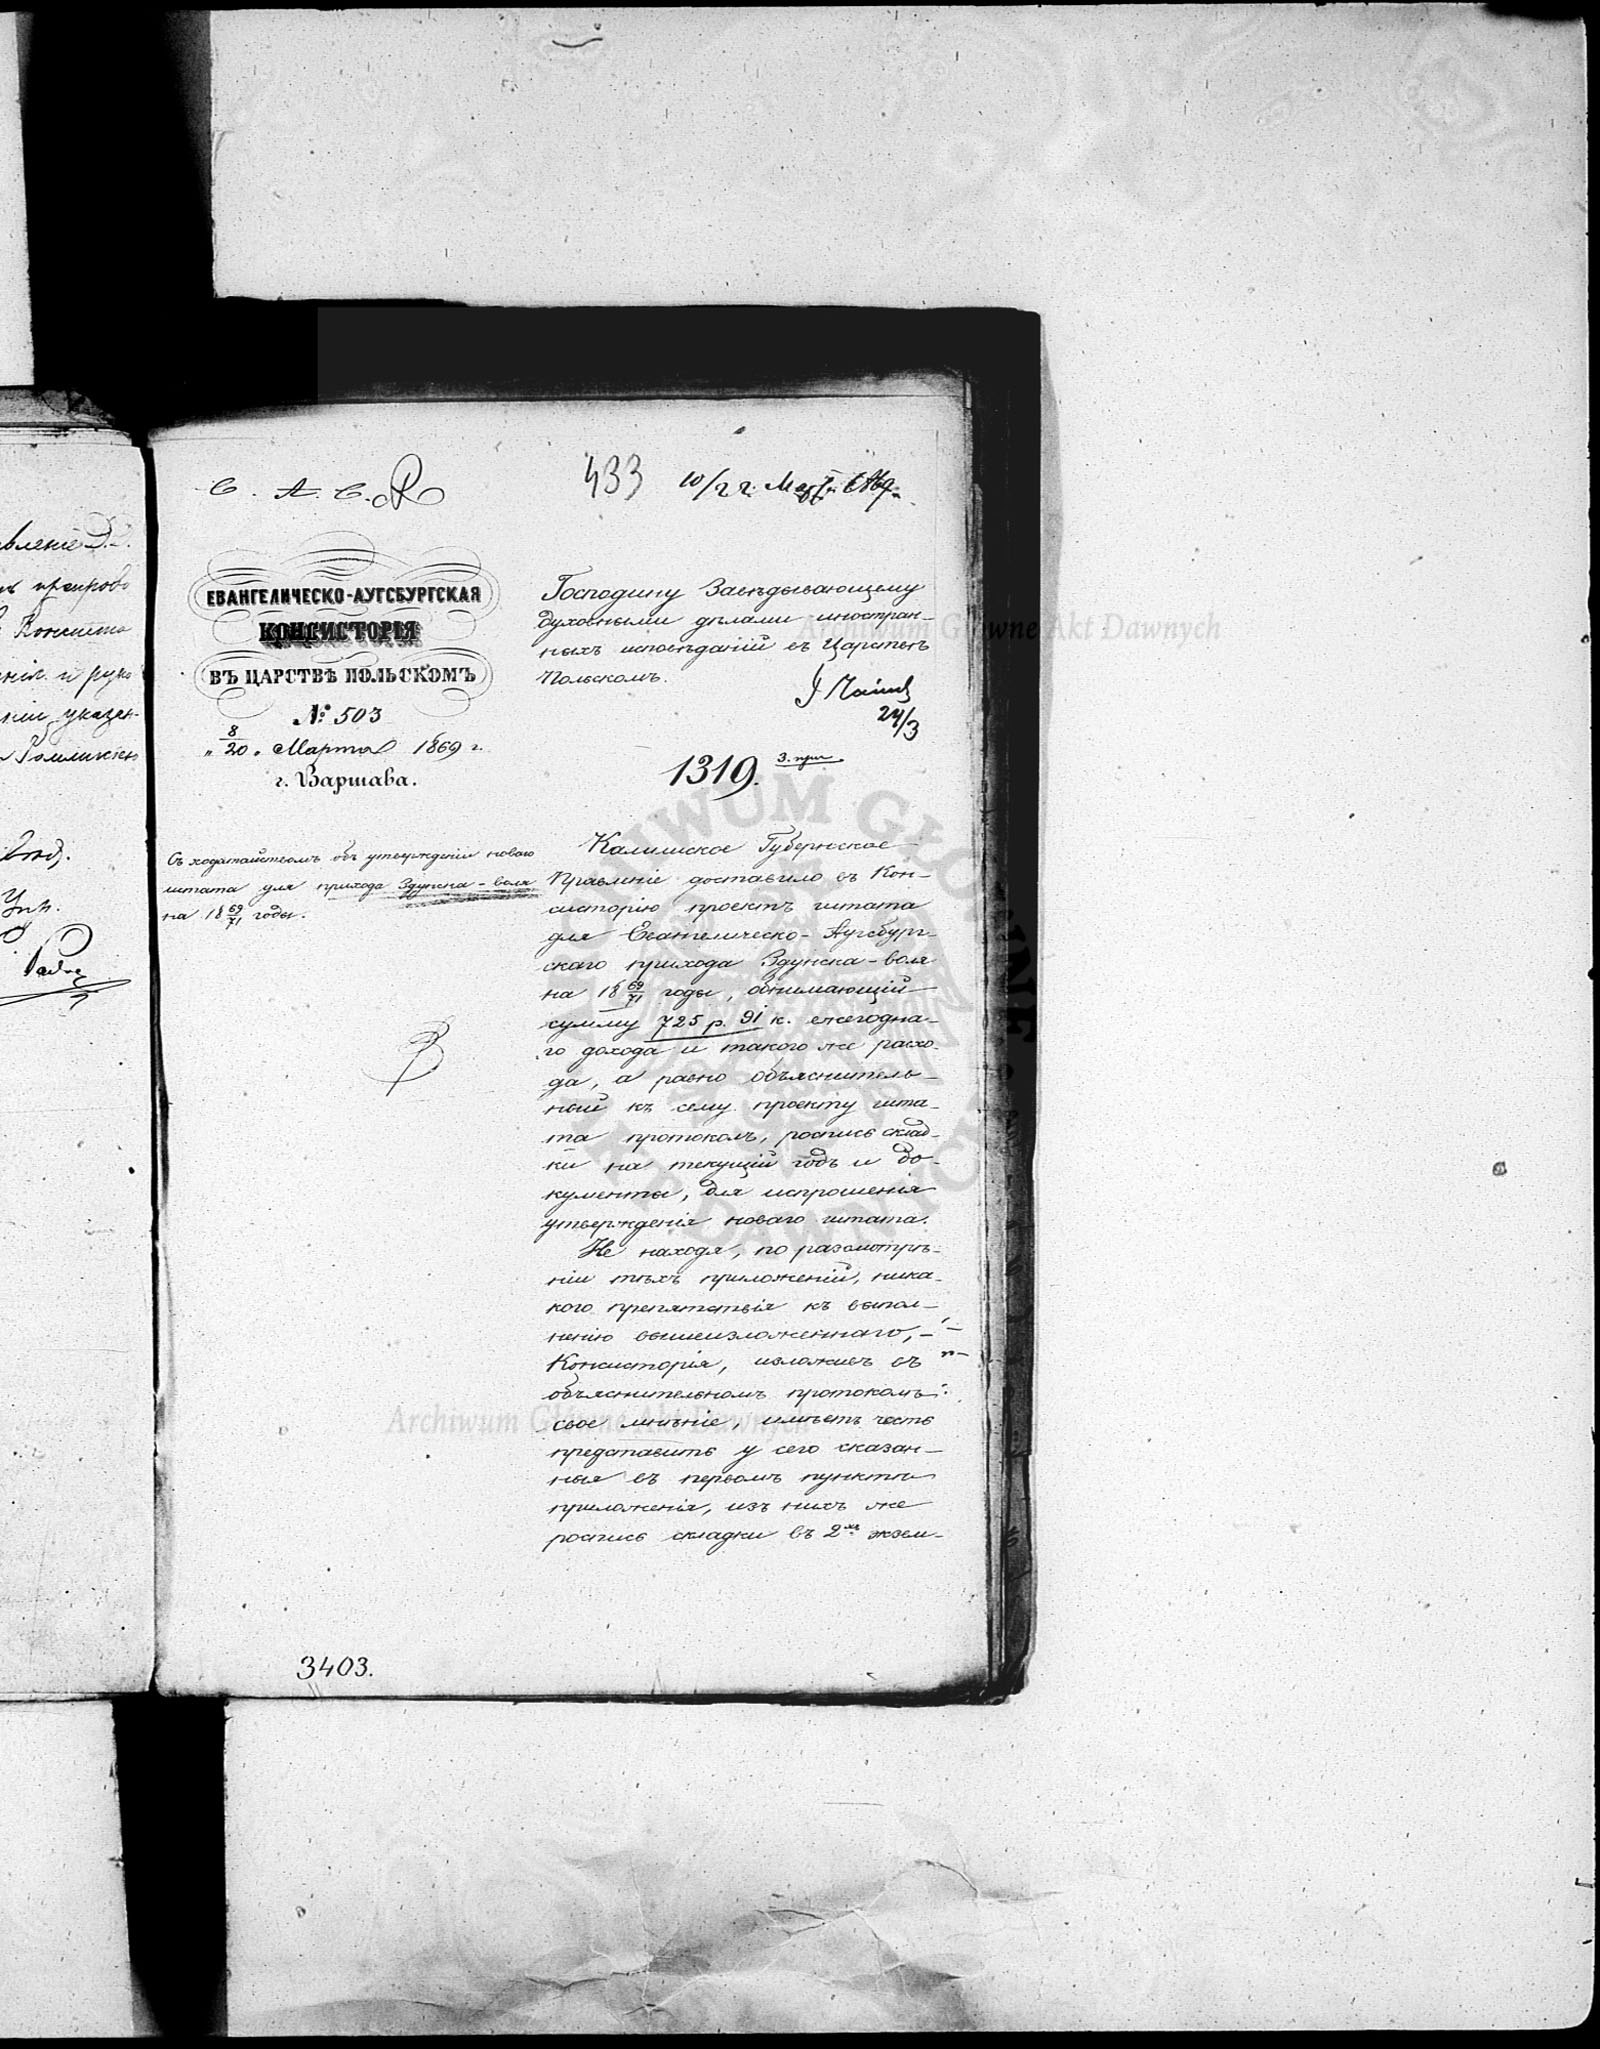 С. А. С.
433 10/22 Марта 1869
ЕВАНГЕЛИЧЕСКО-АУГСБУРГСКАЯ
КОНСИСТОРІЯ
ВЪ ЦАРСТВѢ ПОЛЬСКОМЪ
№ 503
„ 8/20 „ Марта 1869 г.
г. Варшава.
Съ ходатайствомъ объ утвержденіи новаго
штата для прихода Здунска-воля
на 18 69/71 годы.
Господину Завѣдывающему
духовными дѣлами иностран-
ныхъ исповѣданій въ Царствѣ
Польскомъ.
24/3
1319. 3. при
Калишское Губернское
Правленіе доставило въ Кон-
систорію проектъ штата
для Евангелическо-Аугсбург-
скаго прихода Здунска-воля
на 18 69/71 годы, обнимающій
сумму 725 р. 91 к. ежегодна-
го дохода и такого же расхо-
да, а равно объяснитель-
ный къ сему проекту шта-
та протоколъ, роспись склад-
ки на текущій годъ и до-
кументы, для испрошенія
утвержденія новаго штата.
Не находя, по разсмотрѣ-
ніи тѣхъ приложеній, ника-
кого препятствія къ выпол-
ненію вышеизложеннаго, –
Консисторія, изложивъ въ
объяснительномъ протоколѣ
свое мнѣніе, имѣетъ честь
представить у сего сказан-
ныя въ первомъ пунктѣ
приложенія, изъ нихъ же
роспись складки въ 2хъ экзем-
3403.
вленіе
препрово
Консисто
нія и руко
ніи указан-
Archiwum Główne Akt Dawnych
Archiwum Główne Akt Dawnych
ARCHIWUM GŁÓWNE AKT DAWNYCH